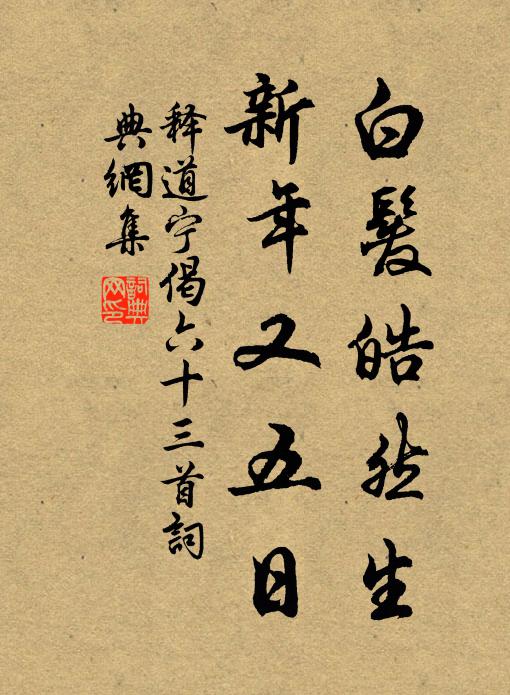 白髮皓然生
新年又五日
释道宁偈六十三首詞
典網集
詞典
网印